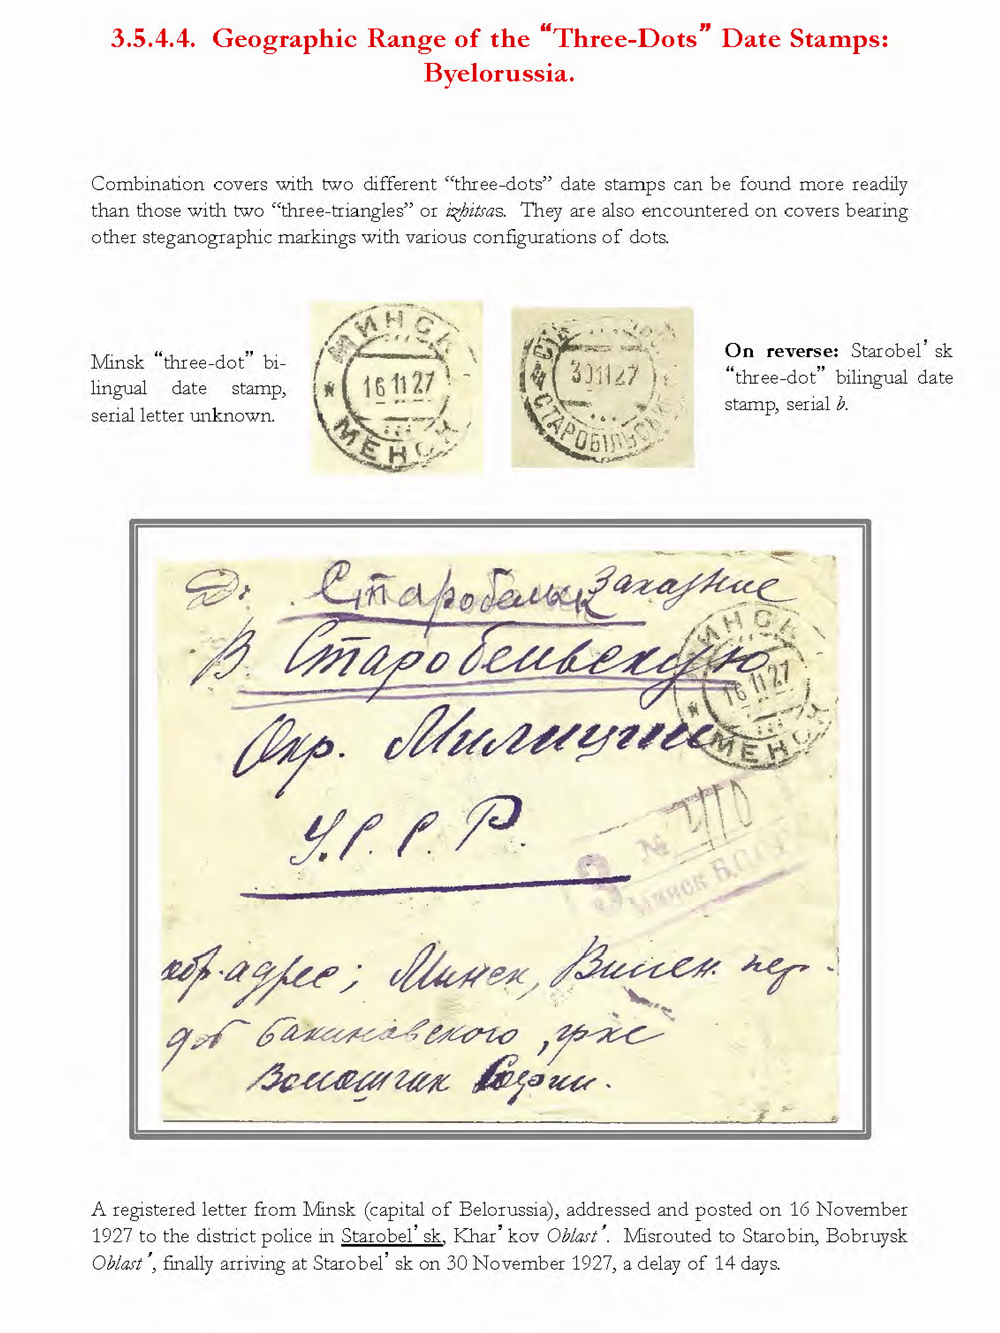 3.5.4.4. Geographic Range of the “Three-Dots” Date Stamps:
Byelorussia.
Combination covers with two different “three-dots” date stamps can be found more readily
than those with two “three-triangles” or izhitsas. They are also encountered on covers bearing
other steganographic markings with various configurations of dots.
Minsk “three-dot” bi-
lingual date stamp,
serial letter unknown.
МИНСК
16 11 27
МЕНСК
30 11 27
СТАРОБІЛЬСЬК
On reverse: Starobel’sk
“three-dot” bilingual date
stamp, serial b.
Старобельск Заказное
В Старобельскую
Окр. Милиции
У.С.С.Р.
МИНСК
16 11 27
МЕНСК
№ 410
З Минск Б.С.С.Р.
обр. адрес; Минск, Вилен. пер.
гр-ке
Софии.
A registered letter from Minsk (capital of Belorussia), addressed and posted on 16 November
1927 to the district police in Starobel’sk, Khar’kov Oblast’. Misrouted to Starobin, Bobruysk
Oblast’, finally arriving at Starobel’sk on 30 November 1927, a delay of 14 days.